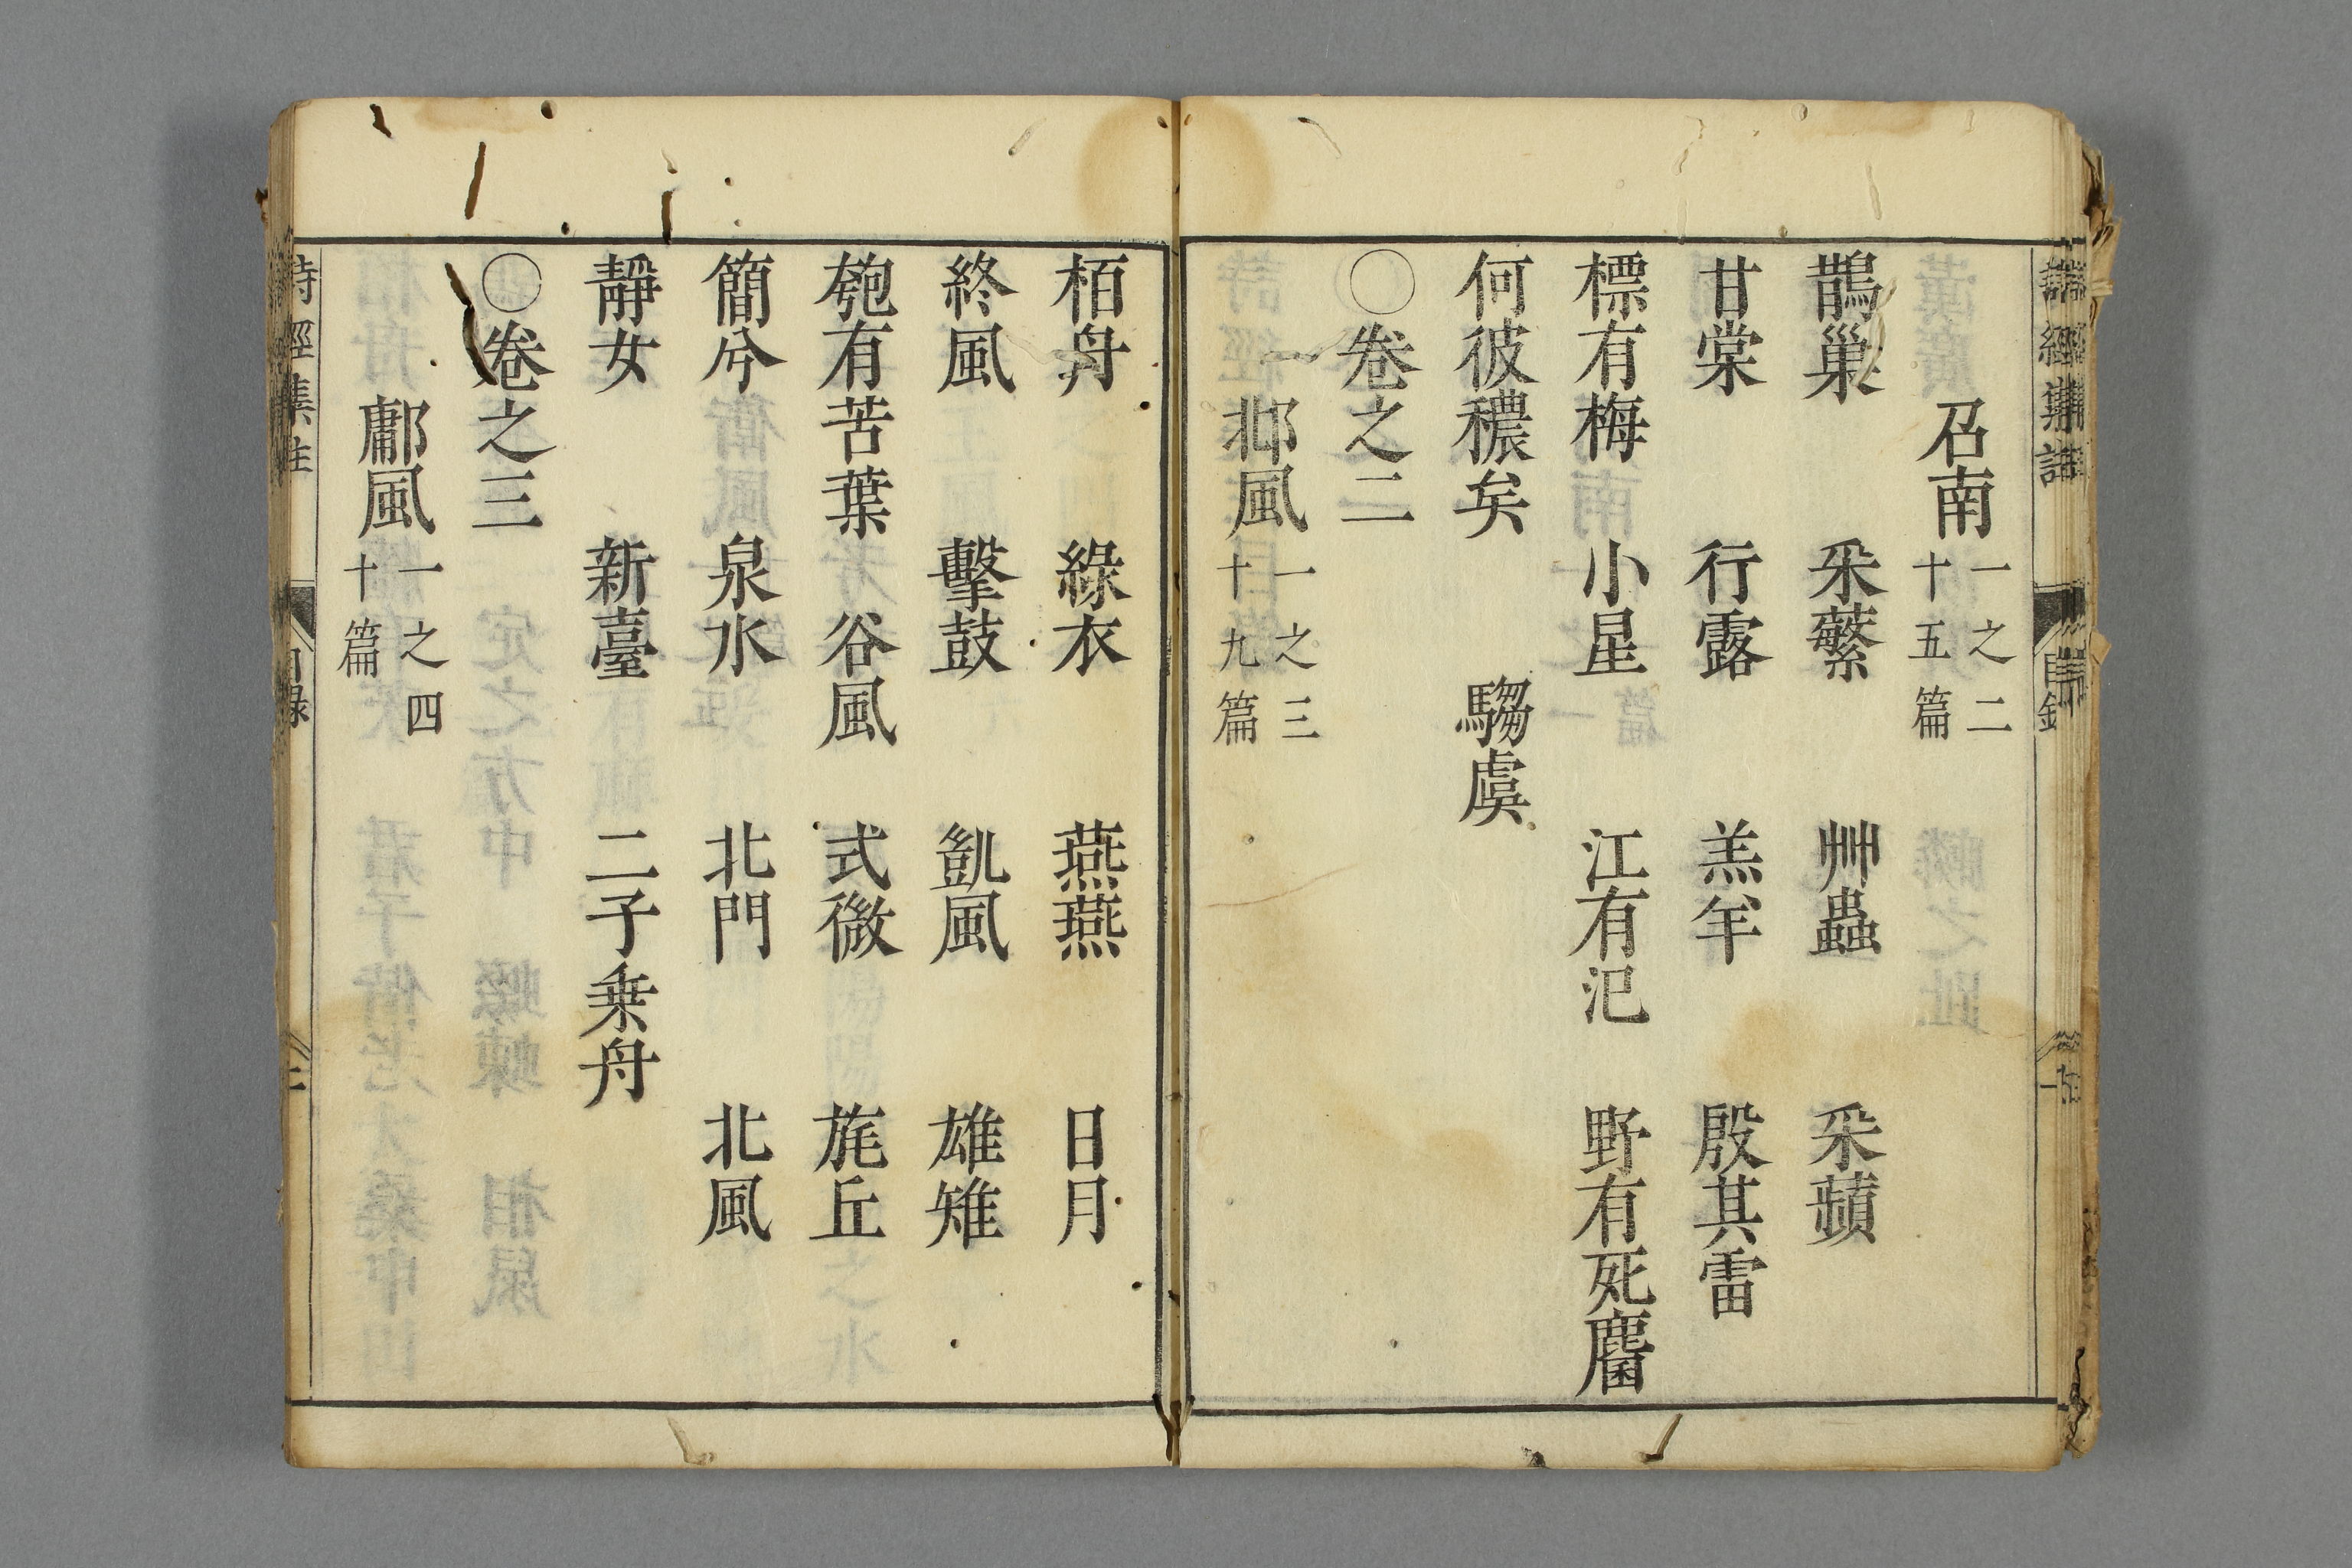 召南 一之二 十五篇
鵲巢 采蘩 艸蟲 采蘋
甘棠 行露 羔羊 殷其雷
標有梅 小星 江有汜 野有死麕
何彼穠矣 騶虞
〇卷之二
邶風 一之三 十九篇
栢舟 綠衣 燕燕 日月
終風 擊鼓 凱風 雄雉
匏有苦葉 谷風 式微 旄丘
簡兮 泉水 北門 北風
靜女 新臺 二子乗舟
〇卷之三
鄘風 一之四 十篇
詩經集註 目錄